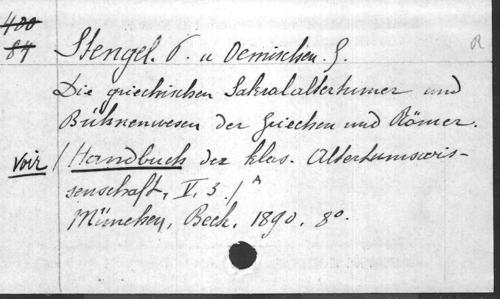 400
84
Stengel. P. u Oemischen. G.
R
Die griechischen Sakralaltertumer und
Bühnenwesen der Griechen und Römer.
voir / Handbuch der klas. Altertumswis-
senschaft, V. 3. / A
München, Beck, 1890, 8o.